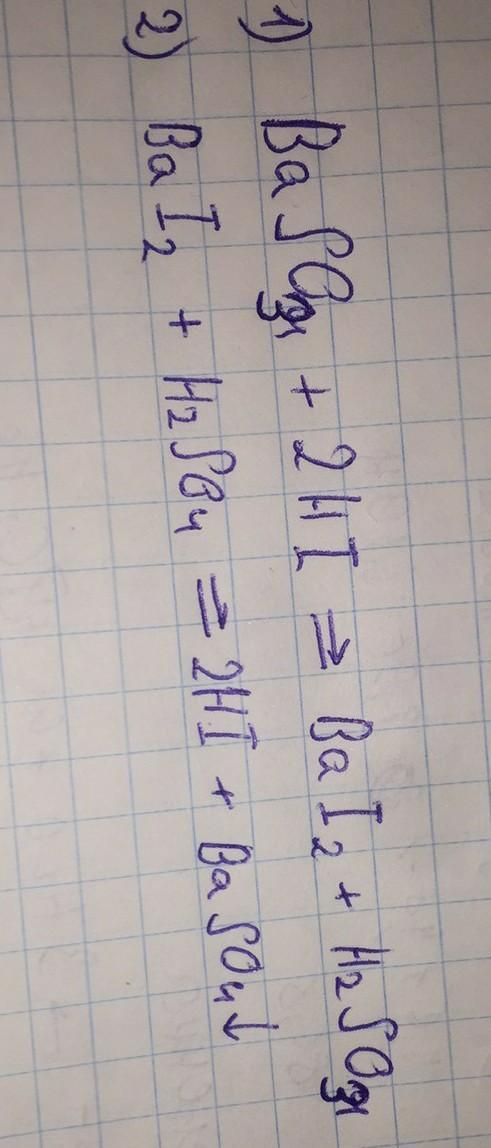 1) BaSO₃ + 2HI ⇒ BaI₂ + H₂SO₃
2) BaI₂ + H₂SO₄ ⇒ 2HI + BaSO₄↓